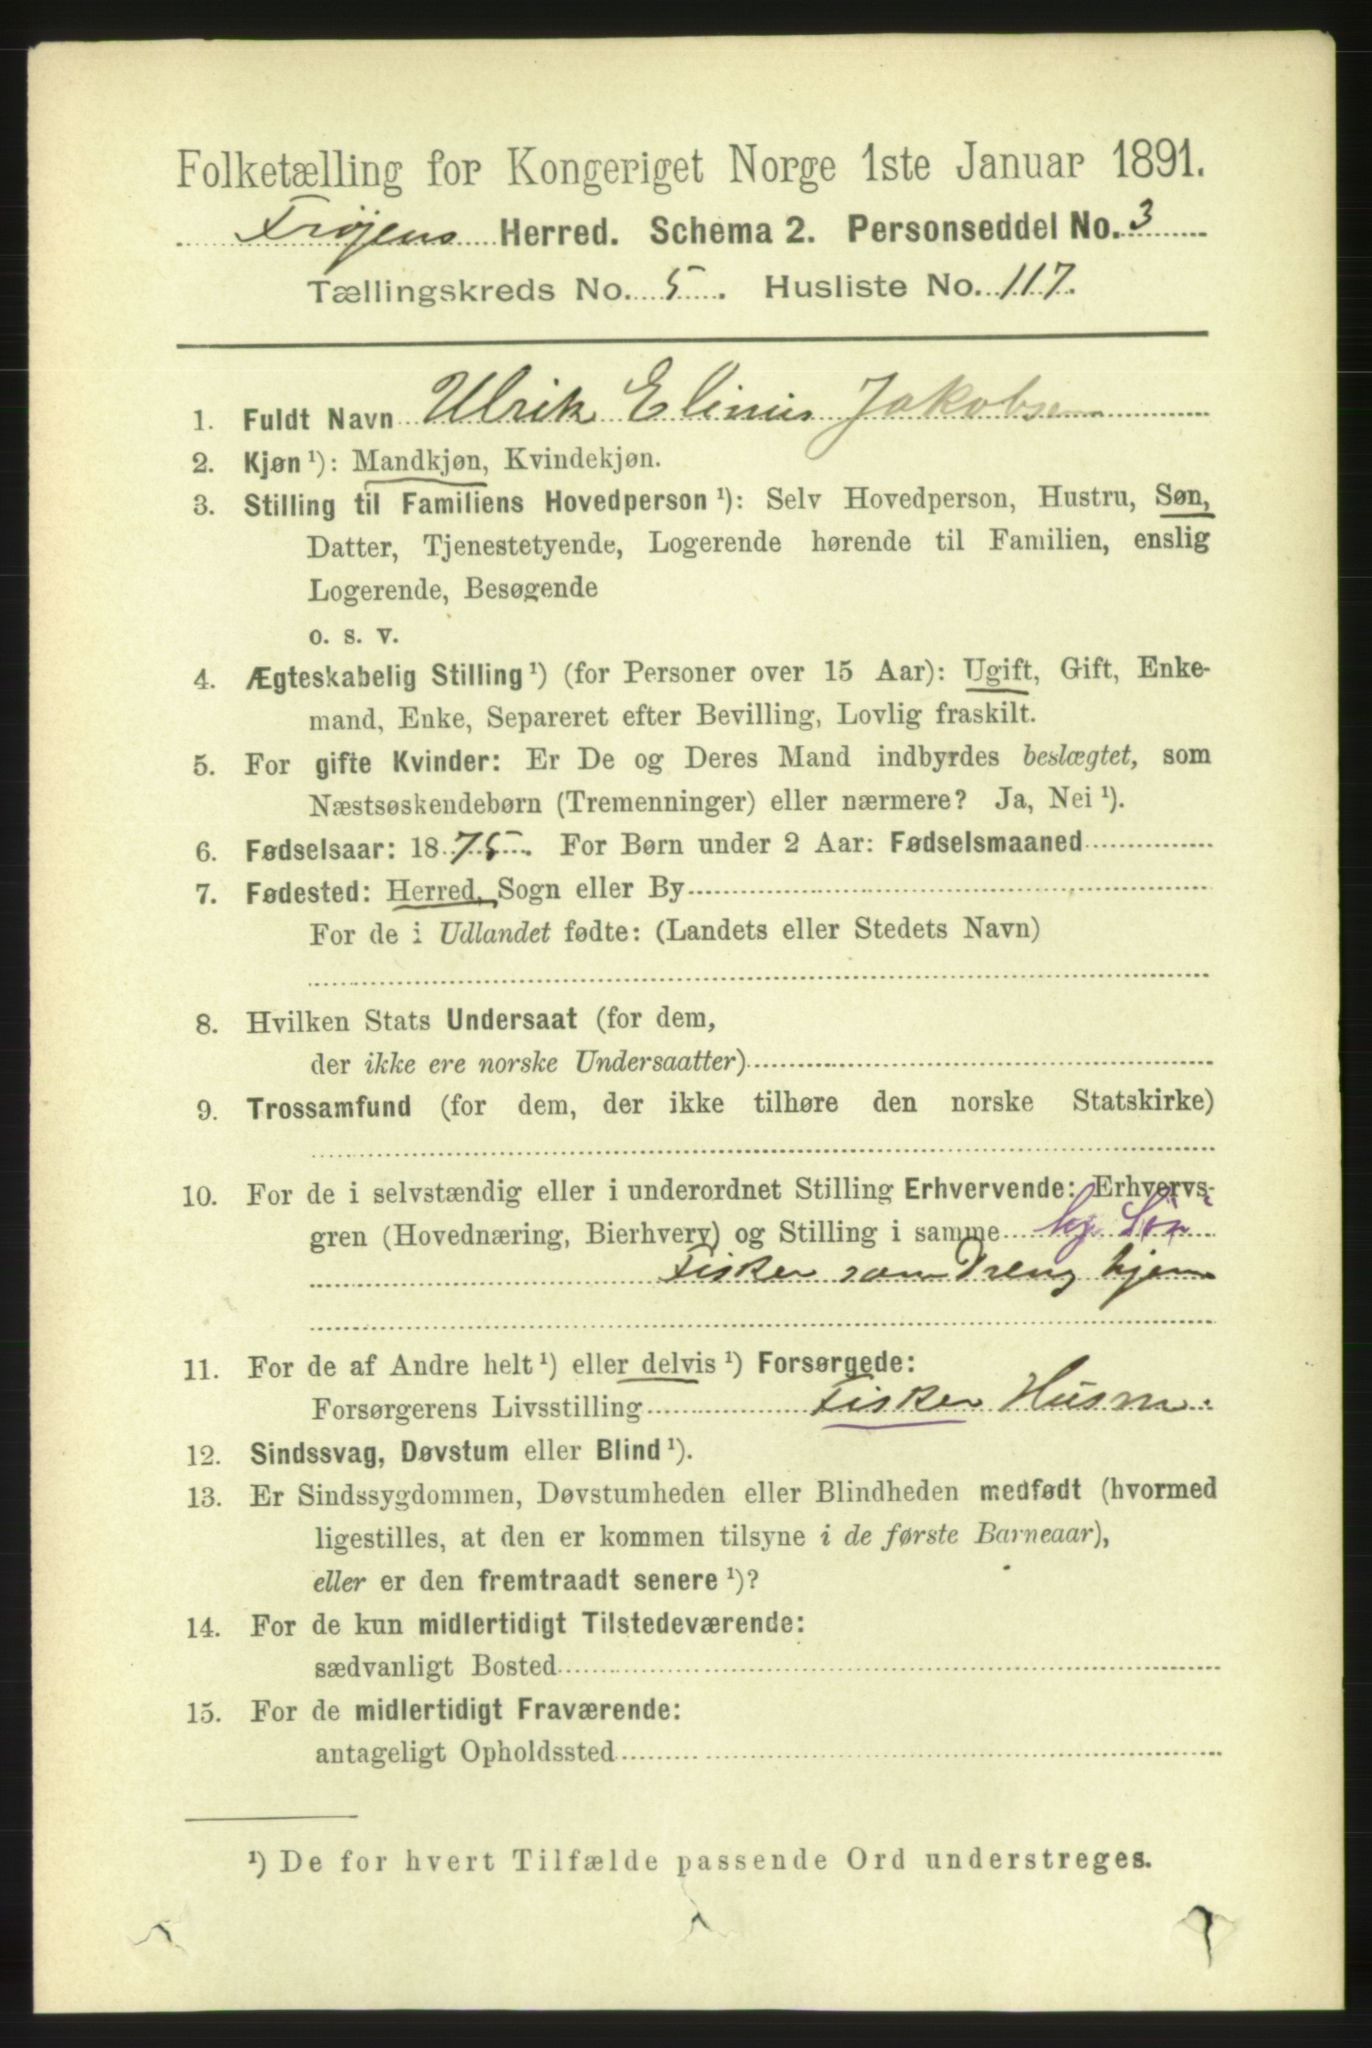 Folketælling for Kongeriget Norge 1ste Januar 1891.
Frøjens Herred. Schema 2. Personseddel No. 3
Tællingskreds No. 5. Husliste No. 117.
1. Fuldt Navn Ulrik Elinius Jakobsen
2. Kjøn ¹): Mandkjøn, Kvindekjøn.
3. Stilling til Familiens Hovedperson ¹): Selv Hovedperson, Hustru, Søn,
Datter, Tjenestetyende, Logerende hørende til Familien, enslig
Logerende, Besøgende
o. s. v.
4. Ægteskabelig Stilling ¹) (for Personer over 15 Aar): Ugift, Gift, Enke-
mand, Enke, Separeret efter Bevilling, Lovlig fraskilt.
5. For gifte Kvinder: Er De og Deres Mand indbyrdes beslægtet, som
Næstsøskendebørn (Tremenninger) eller nærmere? Ja, Nei ¹).
6. Fødselsaar: 1875. For Børn under 2 Aar: Fødselsmaaned
7. Fødested: Herred, Sogn eller By
For de i Udlandet fødte: (Landets eller Stedets Navn)
8. Hvilken Stats Undersaat (for dem,
der ikke ere norske Undersaatter)
9. Trossamfund (for dem, der ikke tilhøre den norske Statskirke)
10. For de i selvstændig eller i underordnet Stilling Erhvervende: Erhvervs-
gren (Hovednæring, Bierhverv) og Stilling i samme hj. Søn
Fisker som Dreng hjem
11. For de af Andre helt ¹) eller delvis ¹) Forsørgede:
Forsørgerens Livsstilling Fisker Husm.
12. Sindssvag, Døvstum eller Blind ¹).
13. Er Sindssygdommen, Døvstumheden eller Blindheden medfødt (hvormed
ligestilles, at den er kommen tilsyne i de første Barneaar),
eller er den fremtraadt senere ¹)?
14. For de kun midlertidigt Tilstedeværende:
sædvanligt Bosted
15. For de midlertidigt Fraværende:
antageligt Opholdssted
¹) De for hvert Tilfælde passende Ord understreges.